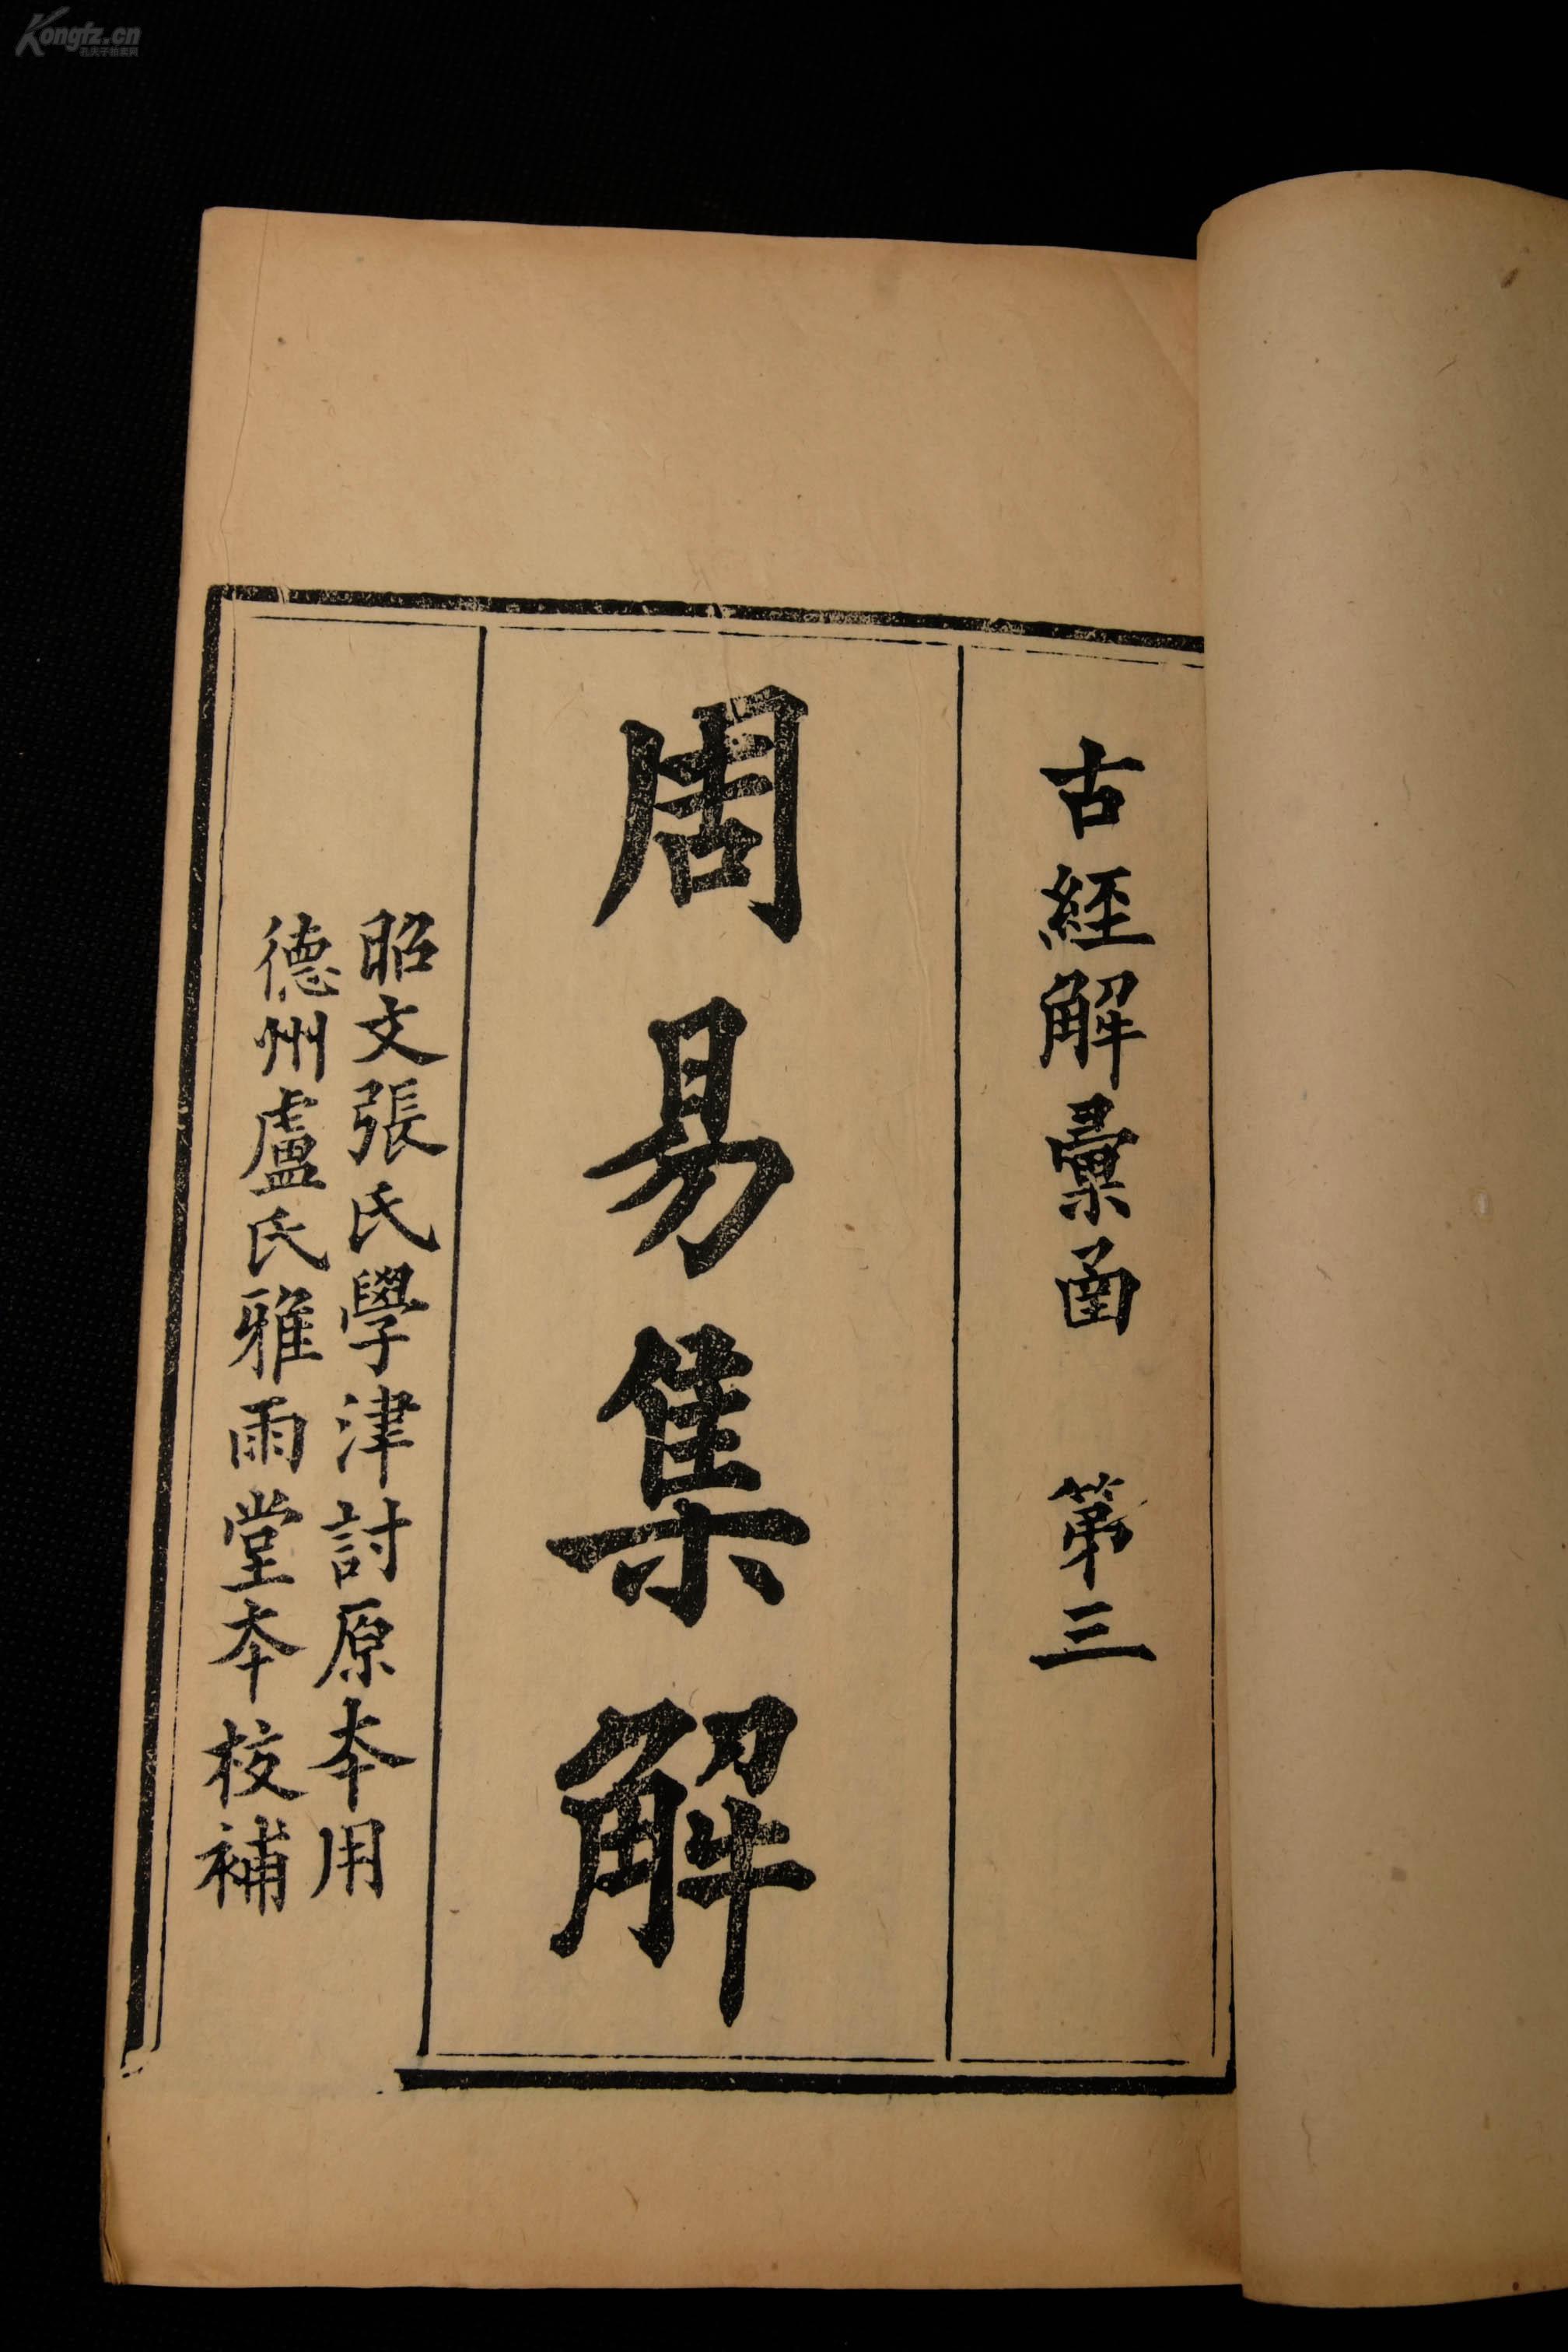 古經解彙函　第三
周易集解
昭文張氏學津討原本用
德州盧氏雅雨堂本校補
Kongfz.cn
孔夫子拍卖网